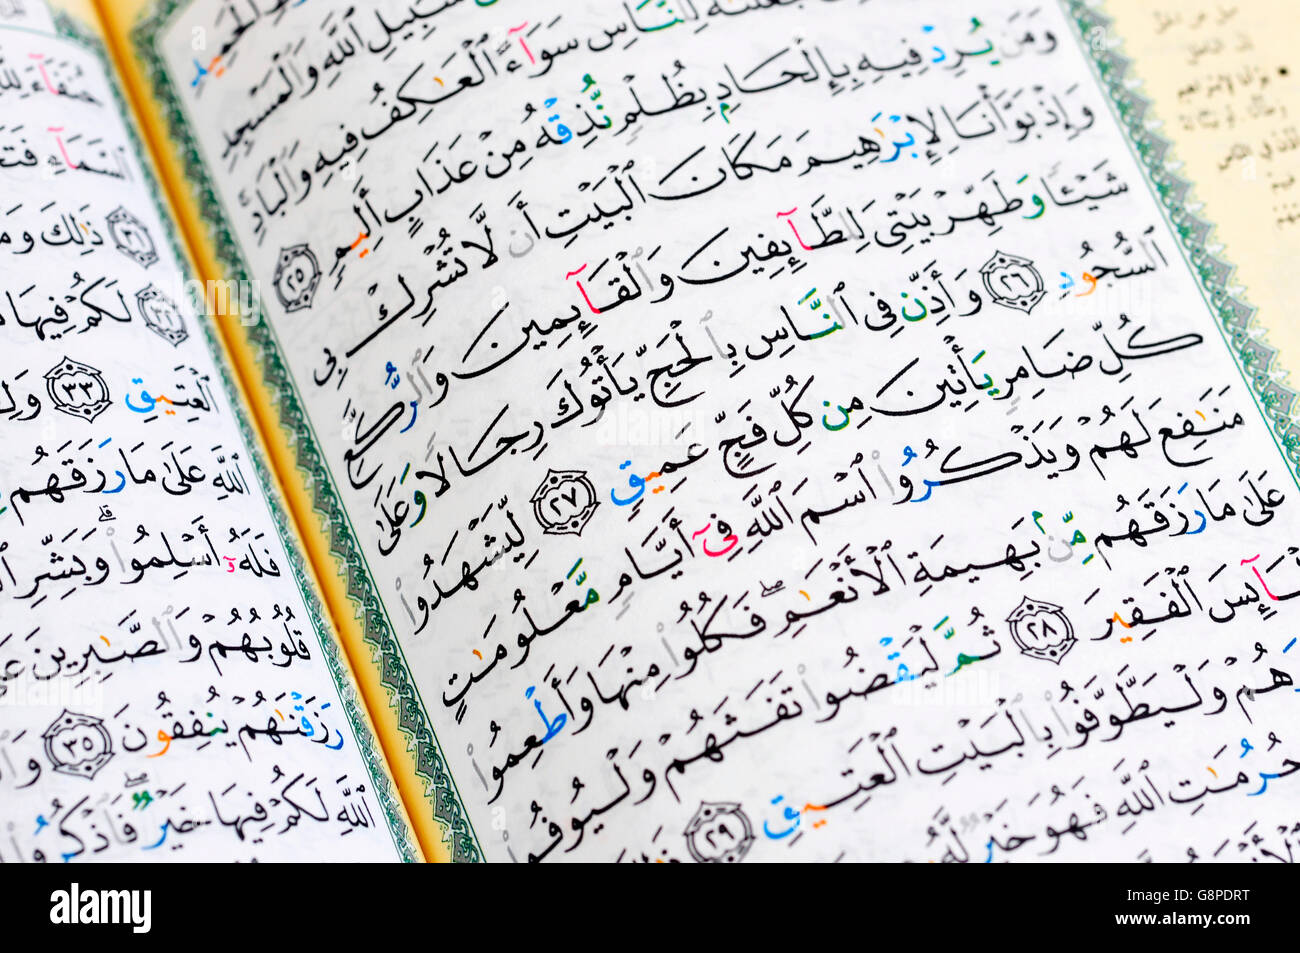 سَبِيلِ ٱللَّهِ وَٱلْمَسْجِدِ
لِلنَّاسِ سَوَآءً ٱلْعَـٰكِفُ فِيهِ وَٱلْبَادِ
وَمَن يُرِدْ فِيهِ بِإِلْحَادٍۭ بِظُلْمٍ نُّذِقْهُ مِنْ عَذَابٍ أَلِيمٍ ٢٥
وَإِذْ بَوَّأْنَا لِإِبْرَٰهِيمَ مَكَانَ ٱلْبَيْتِ أَن لَّا تُشْرِكْ بِى
شَيْـًٔا وَطَهِّرْ بَيْتِىَ لِلطَّآئِفِينَ وَٱلْقَآئِمِينَ وَٱلرُّكَّعِ
ٱلسُّجُودِ ٢٦ وَأَذِّن فِى ٱلنَّاسِ بِٱلْحَجِّ يَأْتُوكَ رِجَالًا وَعَلَىٰ
كُلِّ ضَامِرٍ يَأْتِينَ مِن كُلِّ فَجٍّ عَمِيقٍ ٢٧ لِّيَشْهَدُوا۟
مَنَـٰفِعَ لَهُمْ وَيَذْكُرُوا۟ ٱسْمَ ٱللَّهِ فِىٓ أَيَّامٍ مَّعْلُومَـٰتٍ
عَلَىٰ مَا رَزَقَهُم مِّنۢ بَهِيمَةِ ٱلْأَنْعَـٰمِ ۖ فَكُلُوا۟ مِنْهَا وَأَطْعِمُوا۟
ٱلْفَقِيرَ ٢٨ ثُمَّ لْيَقْضُوا۟ تَفَثَهُمْ وَلْيُوفُوا۟
وَلْيَطَّوَّفُوا۟ بِٱلْبَيْتِ ٱلْعَتِيقِ ٢٩
حُرُمَـٰتِ ٱللَّهِ فَهُوَ خَيْرٌ لَّهُۥ
ذَٰلِكَ
لَكُمْ فِيهَا
ٱلْعَتِيقِ ٣٣
ٱللَّهِ عَلَىٰ مَا رَزَقَهُم
فَلَهُۥٓ أَسْلِمُوا۟ ۗ وَبَشِّرِ
قُلُوبُهُمْ وَٱلصَّـٰبِرِينَ
رَزَقْنَـٰهُمْ يُنفِقُونَ ٣٥
ٱللَّهِ لَكُمْ فِيهَا خَيْرٌ ۖ فَٱذْكُرُوا۟
alamy stock photo
G8PDRT
www.alamy.com